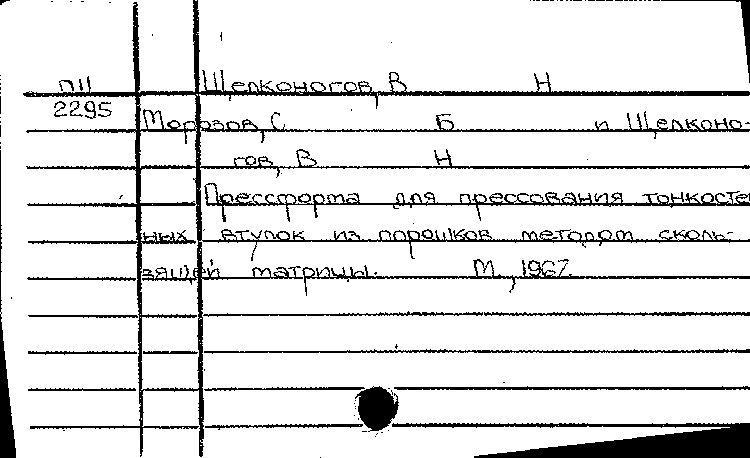 П11 Щелконогов, В Н
2295
Морозов, С Б и Щелконо-
гов, В Н
Прессформа для прессования тонкостен
ных втулок из порошков методом сколь-
зящей матрицы. М., 1967.